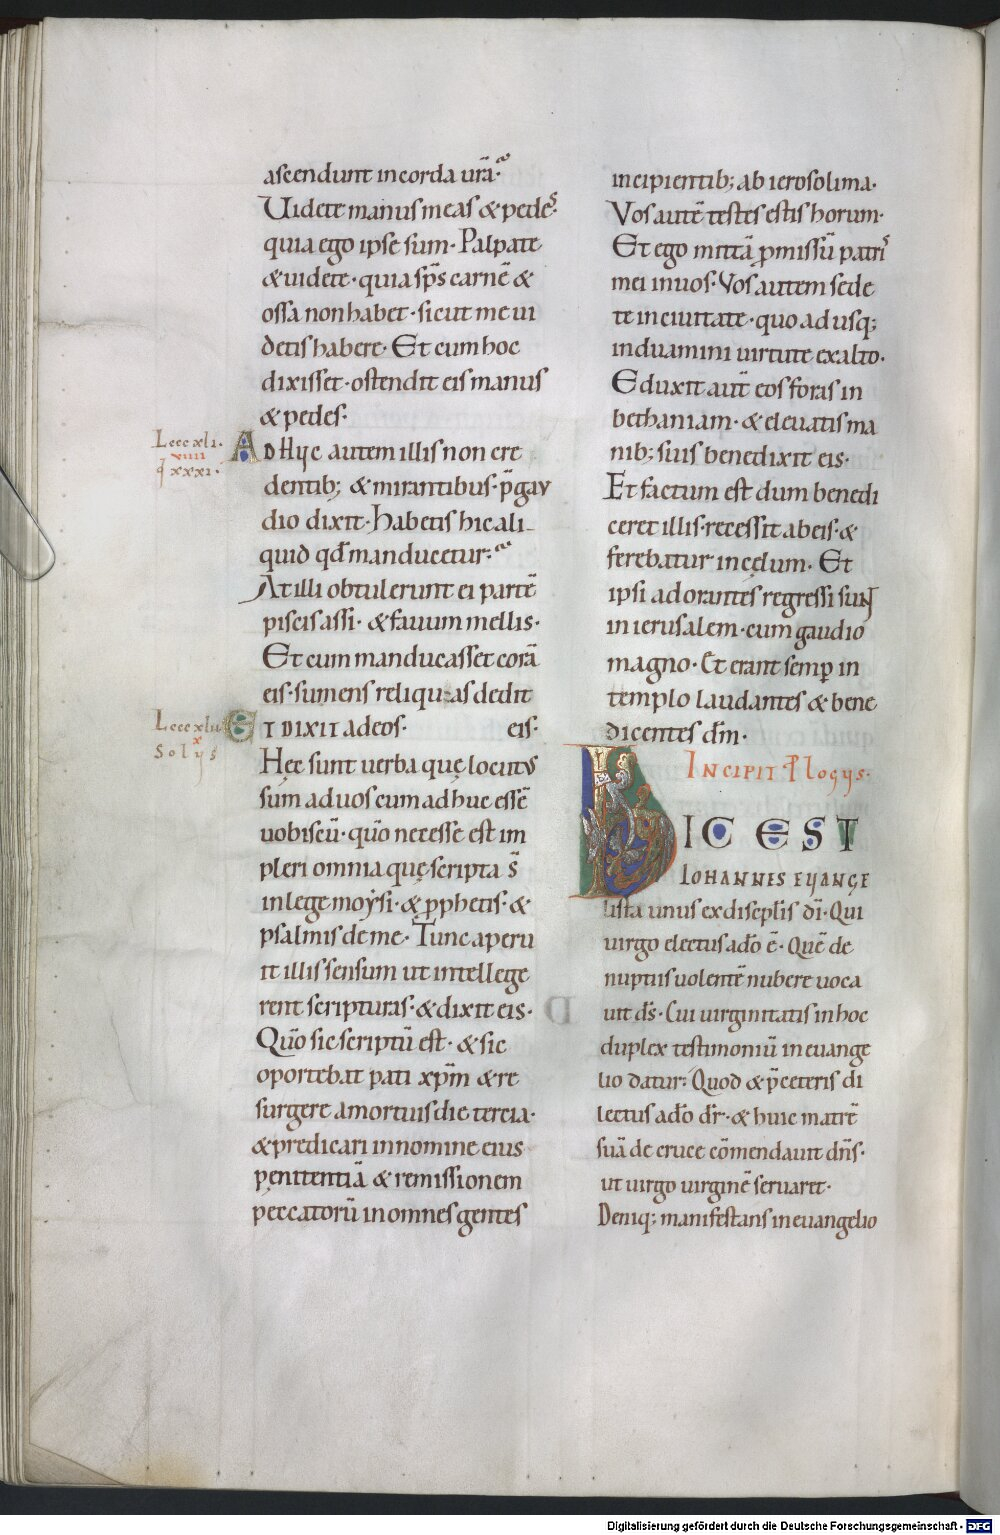 ascendunt in corda ur̄a·
Uidete manus meas & pedes·
quia ego ipse sum· Palpate
& uidete· quia sp̄s carnē &
ossa non habet· sicut me ui
detis habere· Et cum hoc
dixisset· ostendit eis manus
& pedes·
Lcccxli·
viiii
q̄ xxxi·
Adhuc autem illis non cre
dentib; & mirantibus· p̄ gau
dio dixit· Habetis hic ali
quid qd̄ manducetur·
At illi obtulerunt ei partē
piscis assi· & fauum mellis·
Et cum manducasset corā
eis· sumens reliquias dedit
eis·
Lcccxlii
x
Solus
Et dixit ad eos·
Hęc sunt uerba quę locutus
sum ad uos cum adhuc essē
uobiscū· quō necesse est im
pleri omnia quę scripta s̄
in lege moysi· & ꝓphetis· &
psalmis de me· Tunc aperu
it illis sensum ut intellege
rent scripturas· & dixit eis·
Quō sic scriptū est· & sic
oportebat pati xp̄m & re
surgere a mortuis die tercia·
& predicari in nomine eius
penitentiā & remissionem
peccatorū in omnes gentes
incipientib; ab ierosolima·
Vos autē testes estis horum·
Et ego mittā ꝓmissū patris
mei in uos· Vos autem sede
te in ciuitate· quo ad usq;
induamini uirtute ex alto·
Eduxit aut̄ eos foras in
bethaniam· & eleuatis ma
nib; suis benedixit eis·
Et factum est dum benedi
ceret illis· recessit ab eis· &
ferebatur in cęlum· Et
ipsi adorantes regressi sunt
in ierusalem· cum gaudio
magno· Et erant semꝑ in
templo laudantes & bene
dicentes dm̄·
Incipit Plogus·
HIC EST
Iohannes euange
lista unus ex discipl̄is dī· Qui
uirgo electus a dō ē· Quē de
nuptiis uolentē nubere uoca
uit ds̄· Cui uirginitatis in hoc
duplex testimoniū in euange
lio datur· Quod & p̄ ceteris di
lectus a dō dr̄· & huic matrē
suā de cruce cōmendauit dn̄s·
ut uirgo uirginē seruaret·
Deniq; manifestans in euangelio
Digitalisierung gefördert durch die Deutsche Forschungsgemeinschaft - DFG